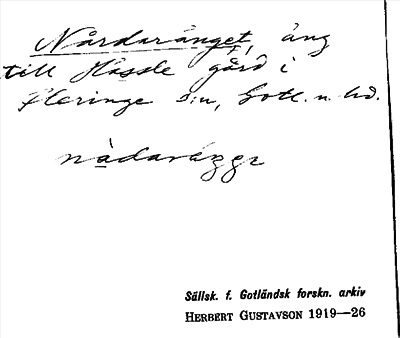 Nårdaränget, äng
till Hässle gård i
Fleringe s:n, Gotl. n. hd.
Sällsk. f. Gotländsk forskn. arkiv
HERBERT GUSTAVSON 1919—26